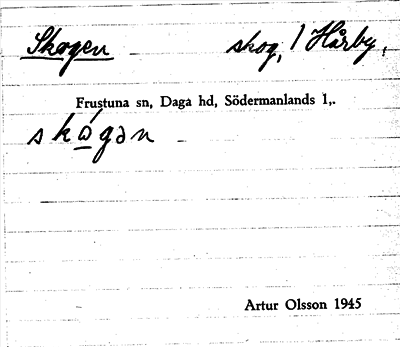 Skogen skog, 1 Hårby,
Frustuna sn, Daga hd, Södermanlands l,.
skó̲gən
Artur Olsson 1945